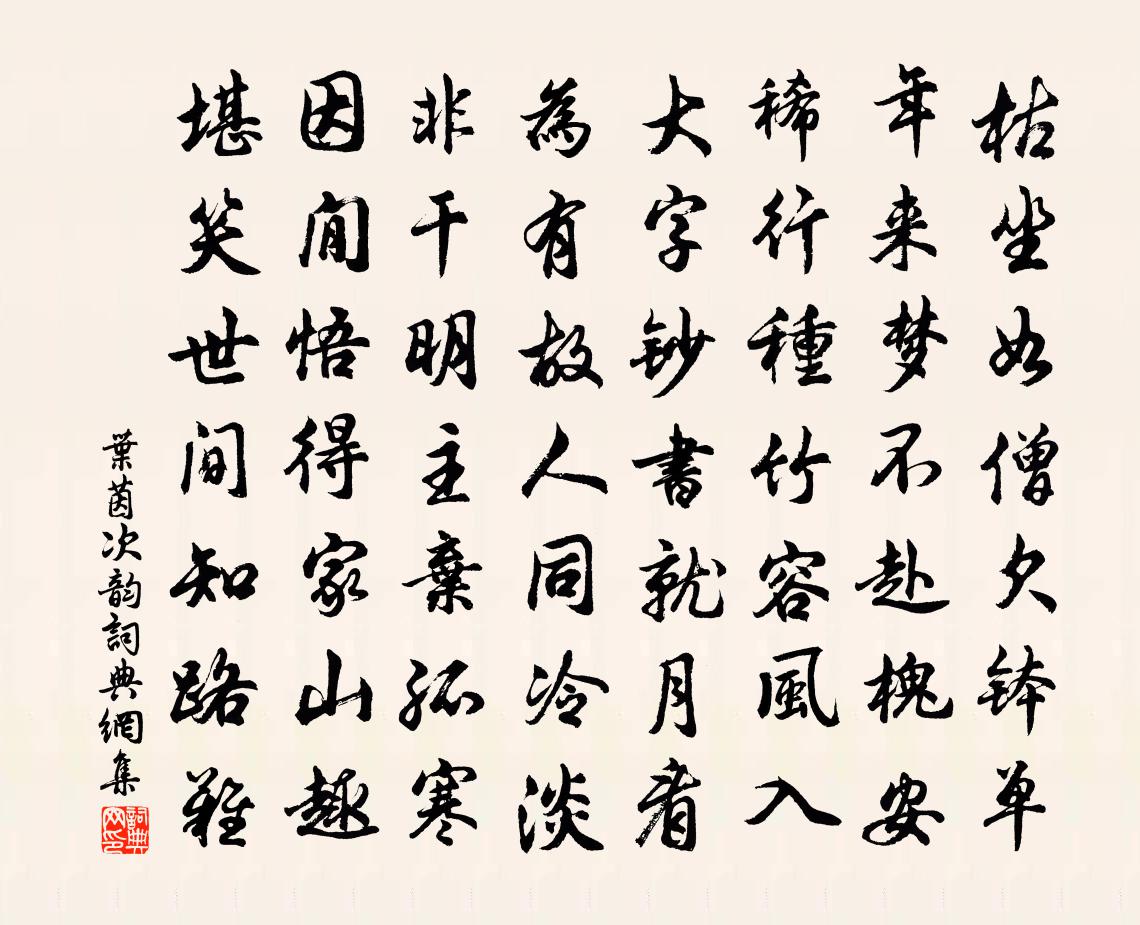 枯坐如僧欠钵单
年来梦不赴槐安
稀行種竹容風入
大字鈔書就月看
為有故人同冷淡
非干明主棄孤寒
因閒悟得家山趣
堪笑世間知路難
葉茵次韵詞典網集
詞典網印